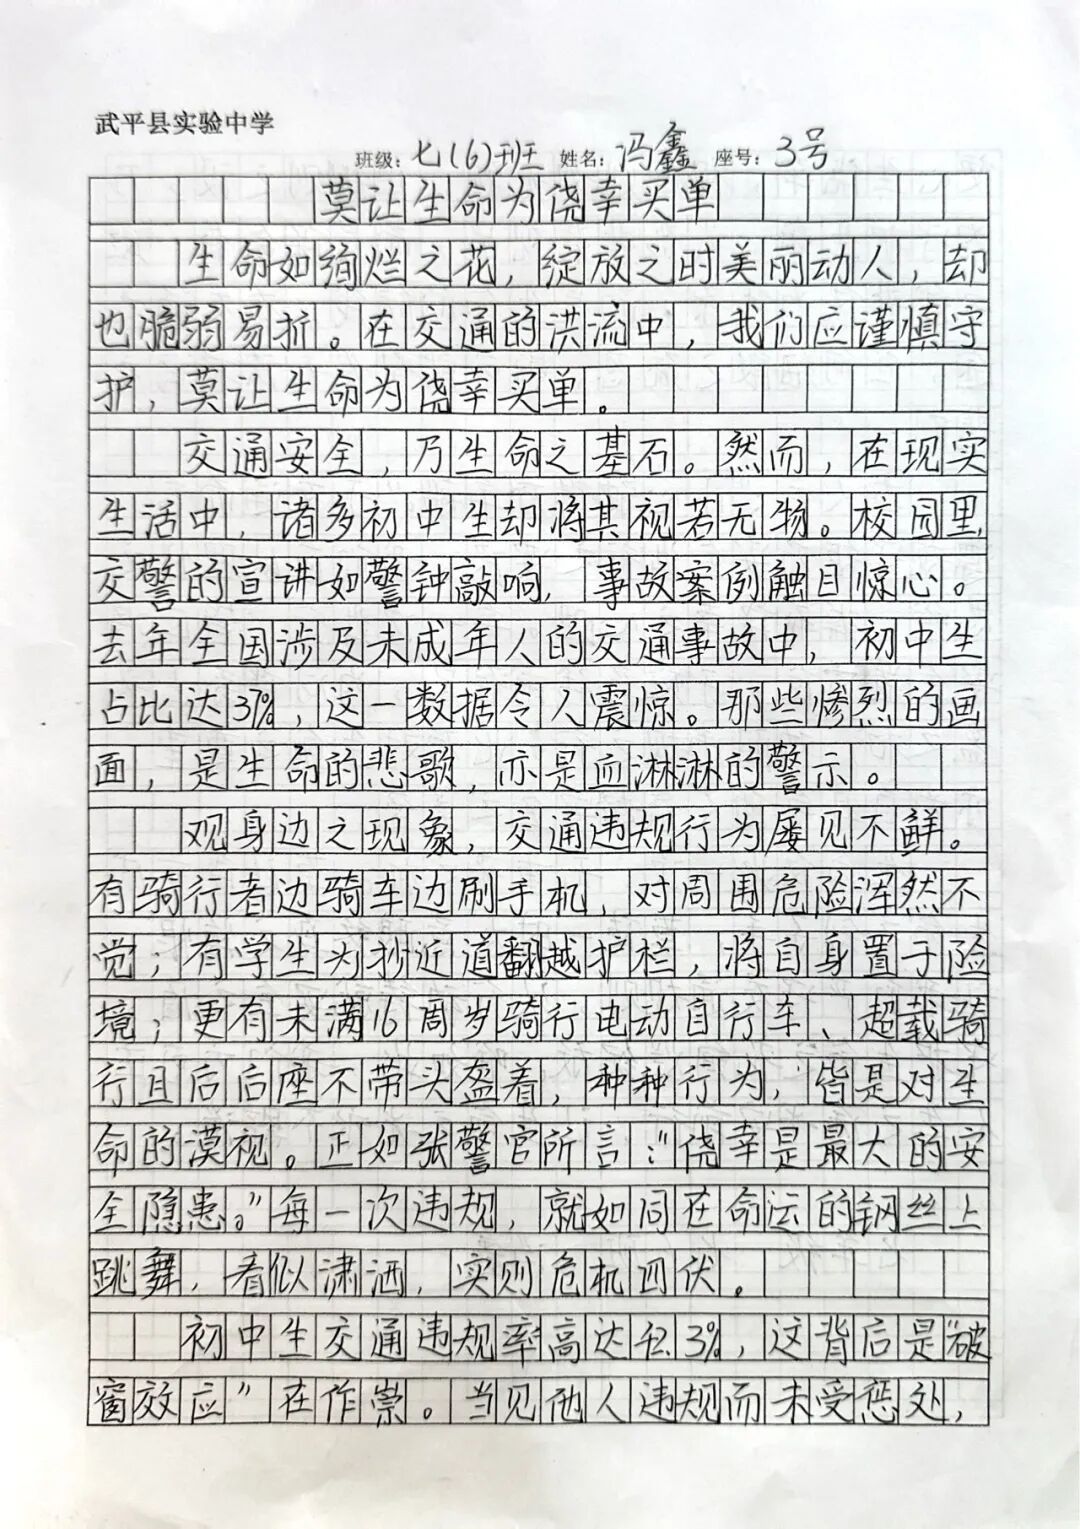 武平县实验中学
班级：七(6)班 姓名：冯鑫 座号：3号
莫让生命为侥幸买单
生命如绚烂之花，绽放之时美丽动人，却
也脆弱易折。在交通的洪流中，我们应谨慎守
护，莫让生命为侥幸买单。
交通安全，乃生命之基石。然而，在现实
生活中，诸多初中生却将其视若无物。校园里，
交警的宣讲如警钟敲响，事故案例触目惊心。
去年全国涉及未成年人的交通事故中，初中生
占比达37%，这一数据令人震惊。那些惨烈的画
面，是生命的悲歌，亦是血淋淋的警示。
观身边之现象，交通违规行为屡见不鲜。
有骑行者边骑车边刷手机，对周围危险浑然不
觉；有学生为抄近道翻越护栏，将自身置于险
境；更有未满16周岁骑行电动自行车、超载骑
行且后后座不带头盔着，种种行为，皆是对生
命的漠视。正如张警官所言：“侥幸是最大的安
全隐患。”每一次违规，就如同在命运的钢丝上
跳舞，看似潇洒，实则危机四伏。
初中生交通违规率高达 3%，这背后是“破
窗效应”在作祟。当见他人违规而未受惩处，